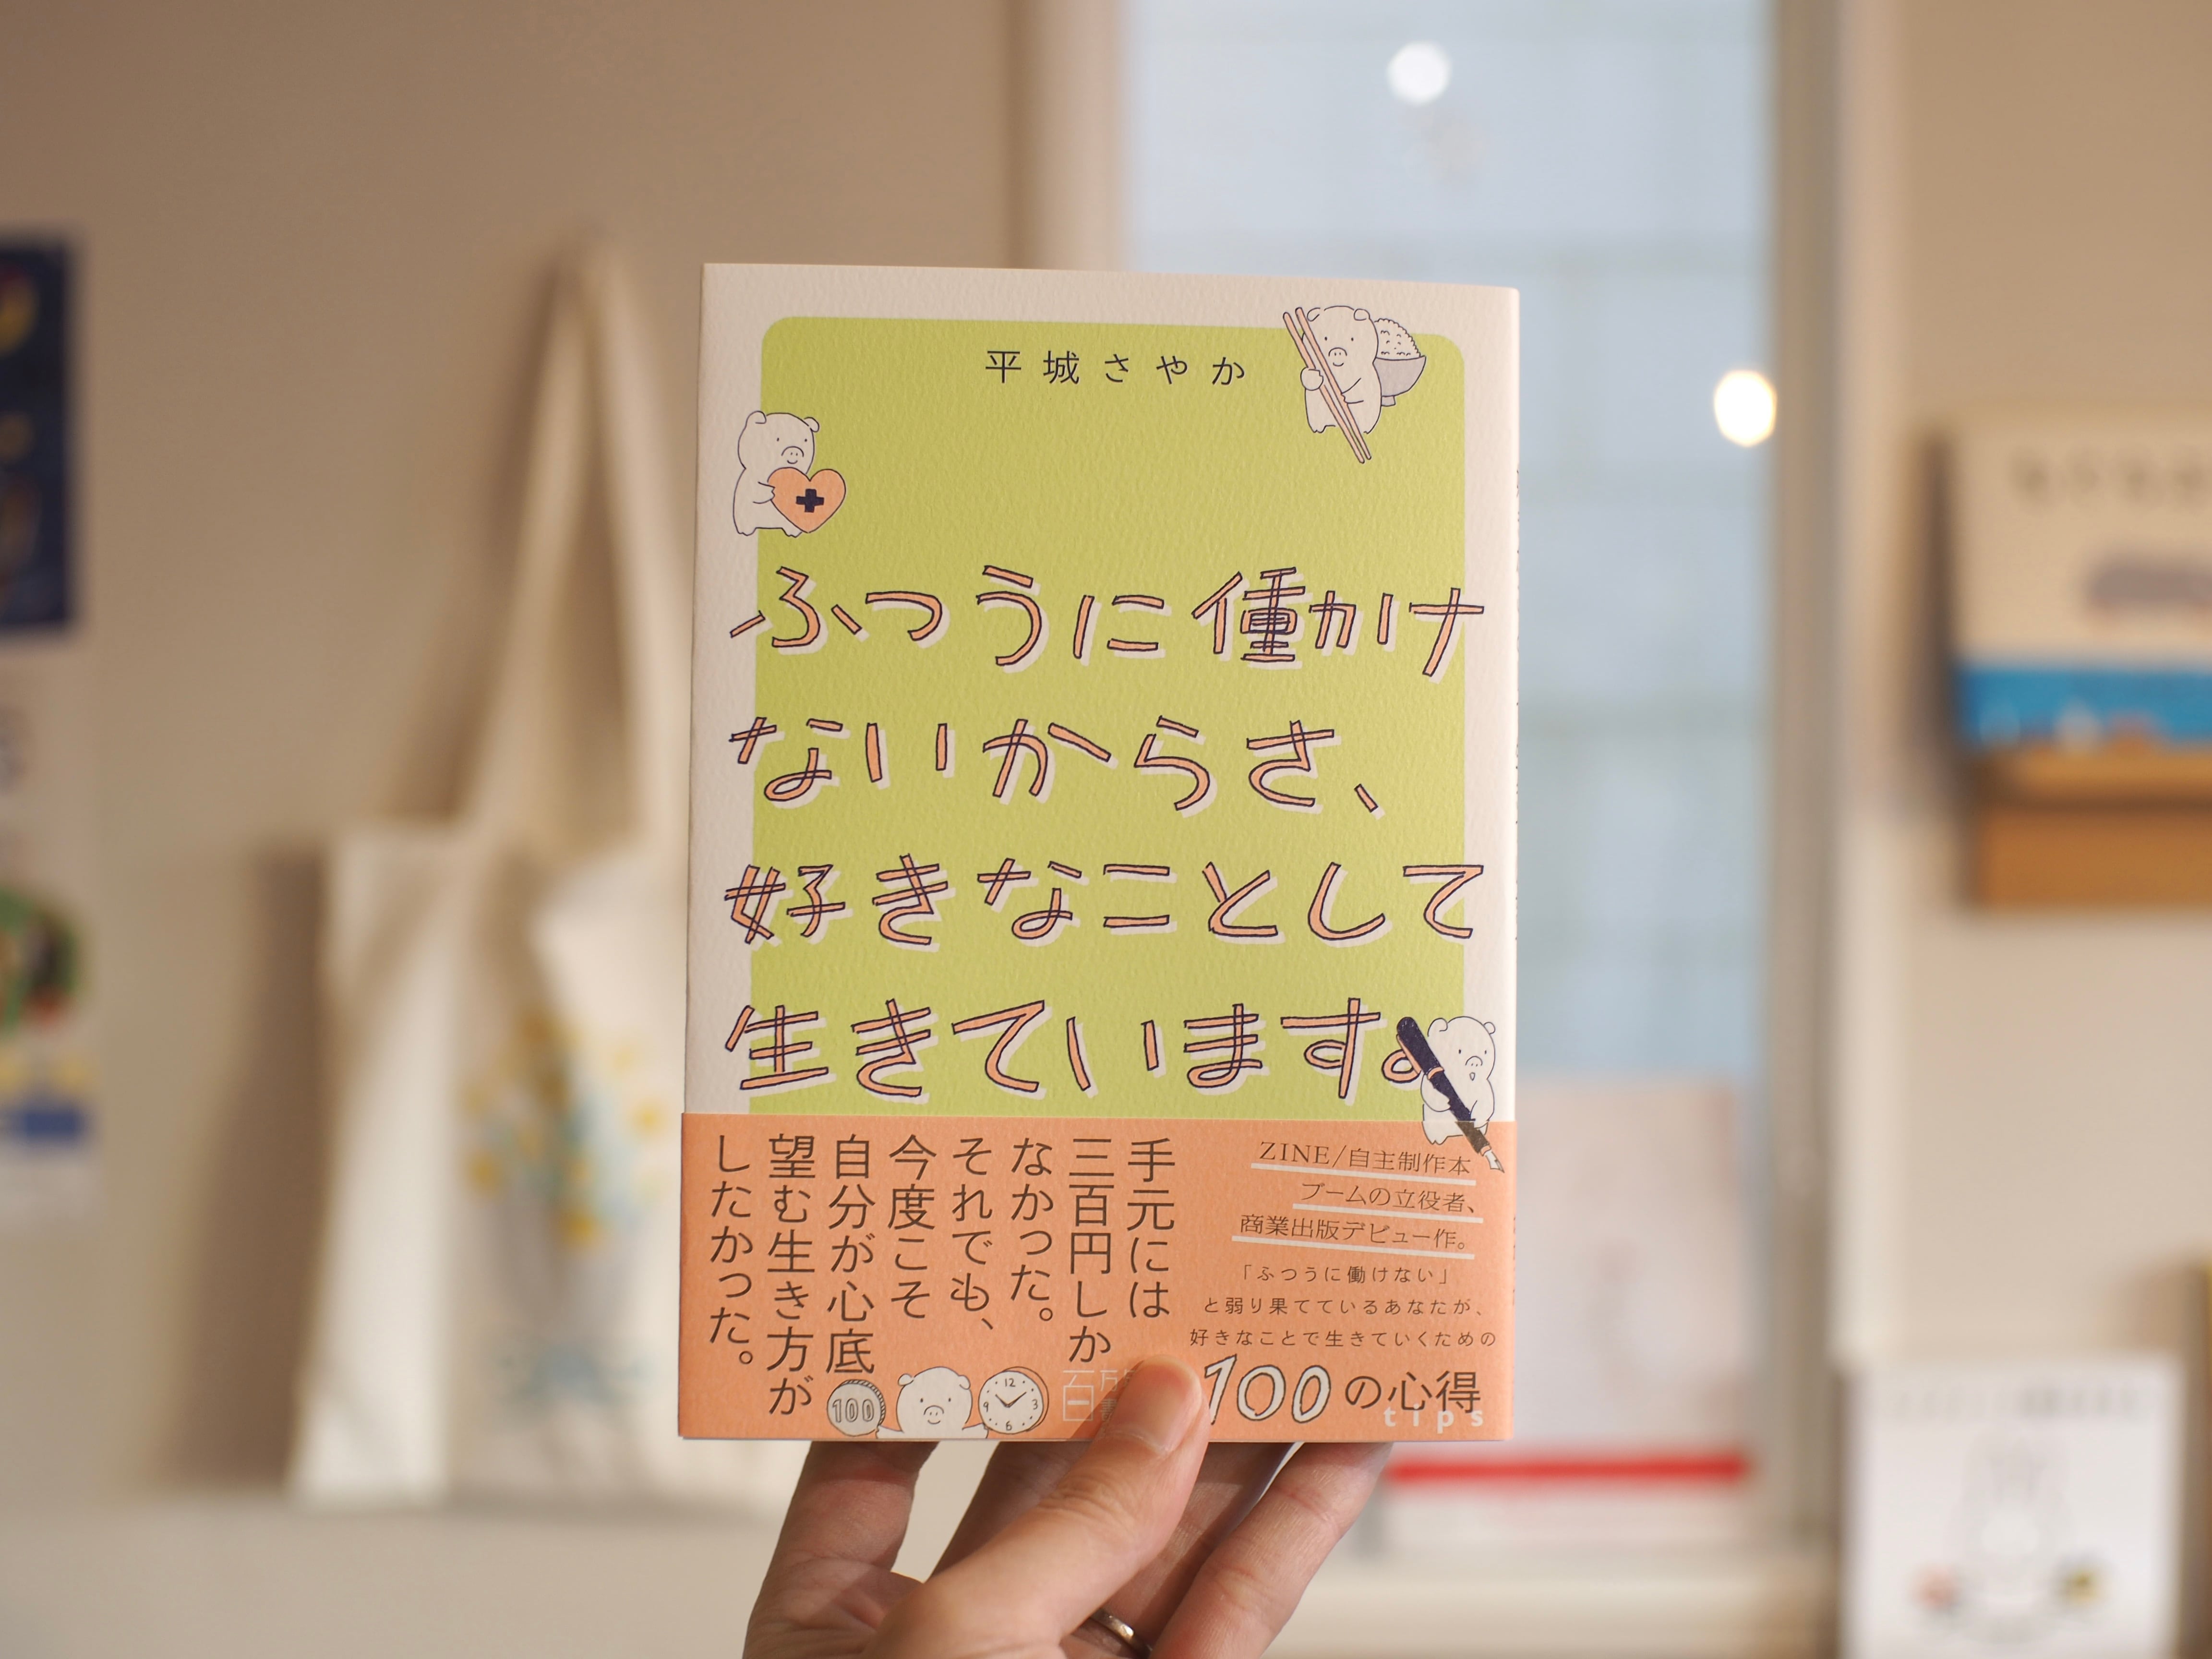 平城さやか
ふつうに働け
ないからさ、
好きなことして
生きています。
ZINE/自主制作本
ブームの立役者、
商業出版デビュー作。
「ふつうに働けない」
と弱り果てているあなたが、
好きなことで生きていくための
100の心得
tips
手元には
三百円しか
なかった。
それでも、
今度こそ
自分が心底
望む生き方が
したかった。
100
12
3
6
9
百万